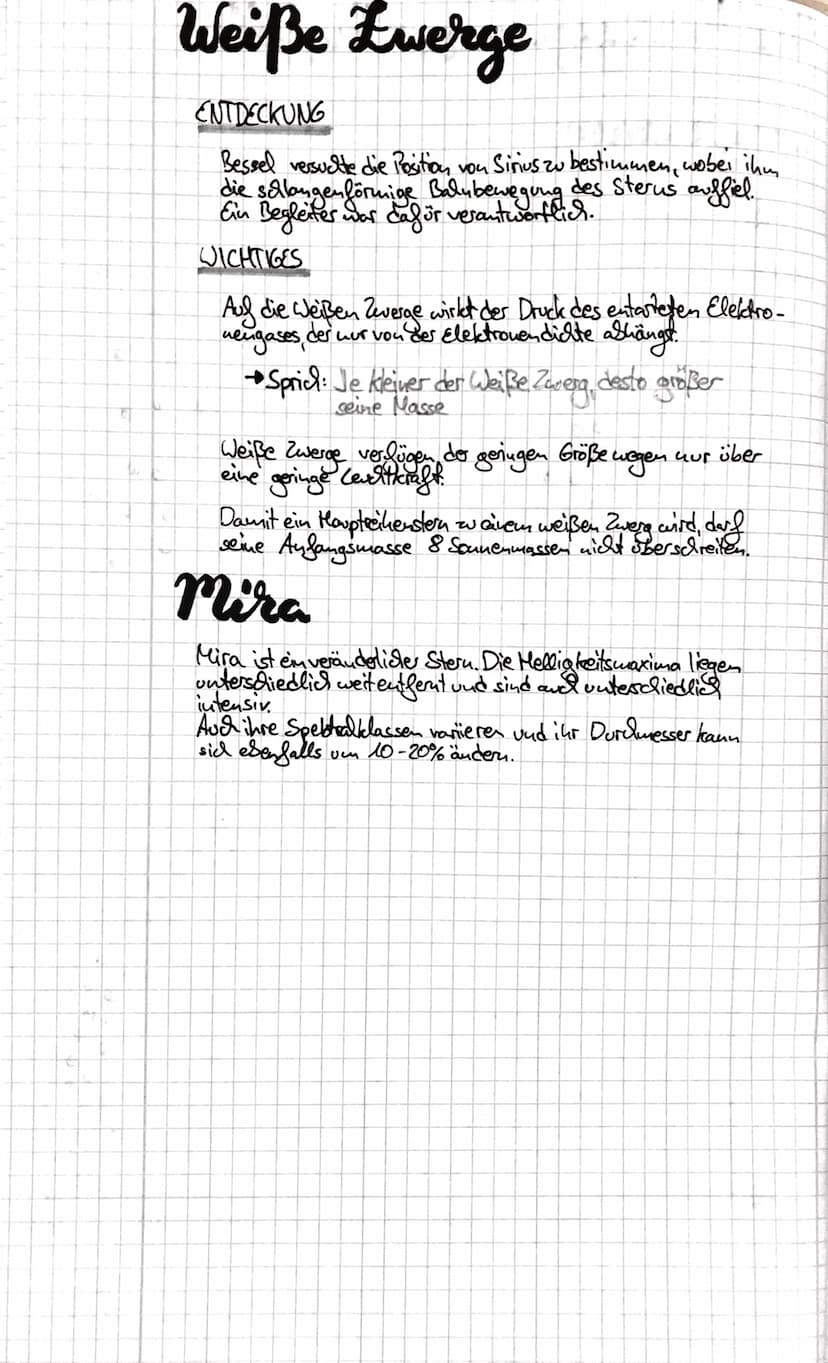 Weiße Zwerge
ENTDECKUNG
Bessel versuchte die Position von Sirius zu bestimmen, wobei ihm
die schlangenförmige Bahnbewegung des Sterns auffiel.
Ein Begleiter war dafür verantwortlich.
WICHTIGES
Auf die Weißen Zwerge wirkt der Druck des entarteten Elektro-
nengases, der nur von der Elektronendichte abhängt.
→ Sprich: Je kleiner der Weiße Zwerg, desto größer
seine Masse
Weiße Zwerge verfügen der geringen Größe wegen nur über
eine geringe Leuchtkraft.
Damit ein Hauptreihenstern zu einem weißen Zwerg wird, darf
seine Anfangsmasse 8 Sonnenmassen nicht überschreiten.
Mira
Mira ist ein veränderlicher Stern. Die Helligkeitsmaxima liegen
unterschiedlich weit entfernt und sind auch unterschiedlich
intensiv.
Auch ihre Spektralklassen variieren und ihr Durchmesser kann
sich ebenfalls um 10-20% ändern.